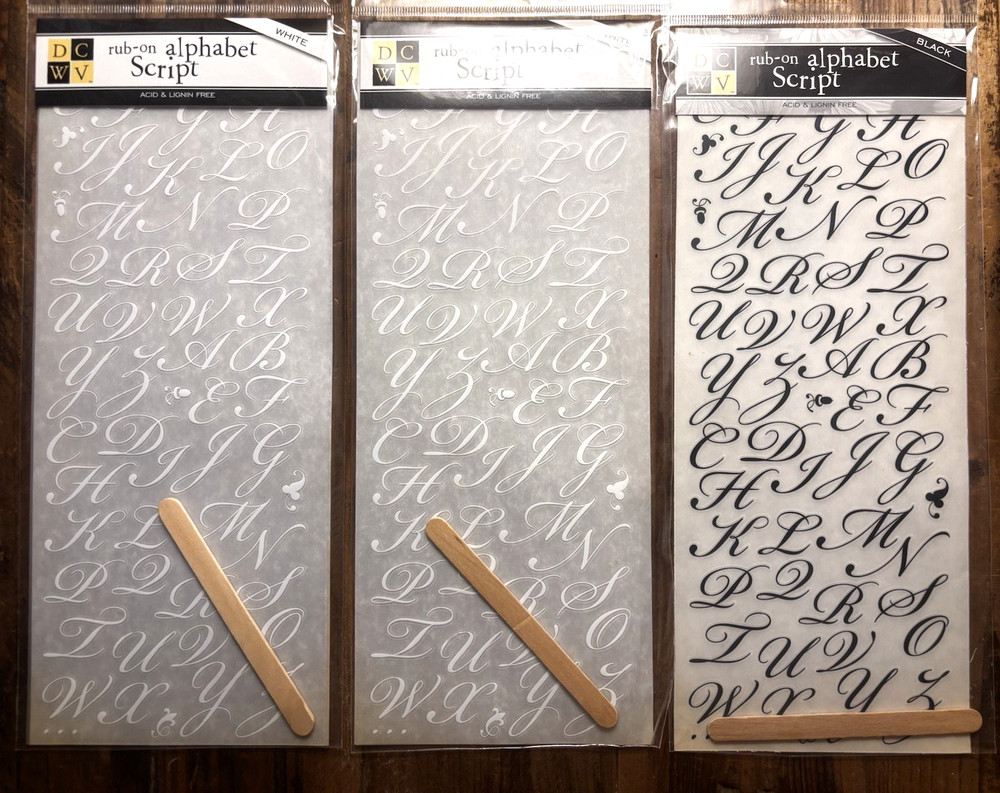 WHITE
D C
W V.
rub-on alphabet
Script
ACID & LIGNIN FREE
E F G H
I J K L O
M N P
Q R S T
U V W X
Y Z A B
E F
C D I J G
H
K L M
N
P Q R S
T U V O
W X Y Z
...
WHITE
D C
W V.
rub-on alphabet
Script
ACID & LIGNIN FREE
E F G H
I J K L O
M N P
Q R S T
U V W X
Y Z A B
E F
C D I J G
H
K L M
N
P Q R S
T U V O
W X Y Z
...
BLACK
D C
W V.
rub-on alphabet
Script
ACID & LIGNIN FREE
E F G H
I J K L O
M N P
Q R S T
U V W X
Y Z A B
E F
C D I J G
H
K L M
N
P Q R S
T U V O
W X Y Z